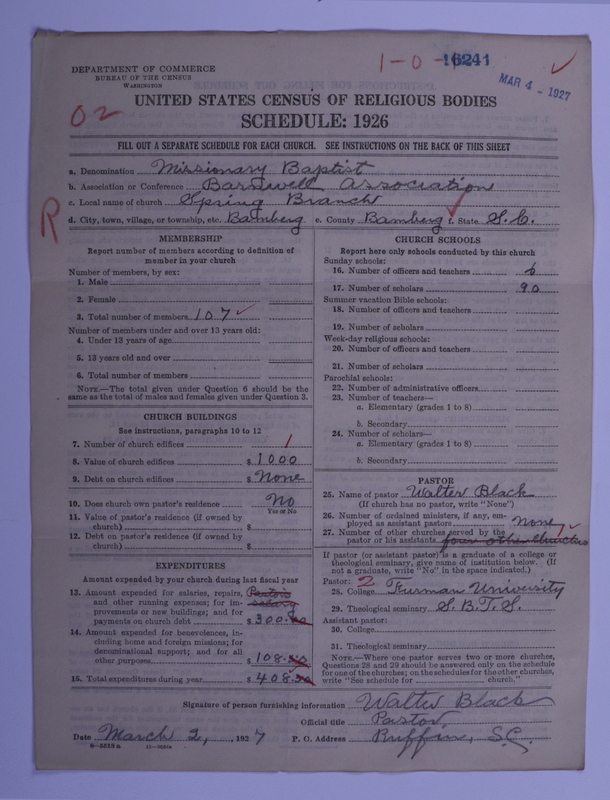 1-0-16241
MAR 4 - 1927
DEPARTMENT OF COMMERCE
BUREAU OF THE CENSUS
WASHINGTON
UNITED STATES CENSUS OF RELIGIOUS BODIES
SCHEDULE: 1926
FILL OUT A SEPARATE SCHEDULE FOR EACH CHURCH. SEE INSTRUCTIONS ON THE BACK OF THIS SHEET
a. Denomination Missionary Baptist
b. Association or Conference Barnwell Association
c. Local name of church Spring Branch
R
d. City, town, village, or township, etc. Bamberg e. County Bamberg f. State S.C.
MEMBERSHIP
Report number of members according to definition of
member in your church
Number of members, by sex:
1. Male
2. Female
3. Total number of members 107
Number of members under and over 13 years old:
4. Under 13 years of age
5. 13 years old and over
6. Total number of members
NOTE.—The total given under Question 6 should be the
same as the total of males and females given under Question 3.
CHURCH BUILDINGS
See instructions, paragraphs 10 to 12
7. Number of church edifices 1
8. Value of church edifices $ 1000
9. Debt on church edifices $ None
10. Does church own pastor's residence No
Yes or No
11. Value of pastor's residence (if owned by
church) $
12. Debt on pastor's residence (if owned by
church) $
EXPENDITURES
Amount expended by your church during last fiscal year
13. Amount expended for salaries, repairs, Pastor's
and other running expenses; for im- salary
provements or new buildings; and for
payments on church debt $ 300.00
14. Amount expended for benevolences, in-
cluding home and foreign missions; for
denominational support; and for all
other purposes $ 108.50
15. Total expenditures during year $ 408.50
CHURCH SCHOOLS
Report here only schools conducted by this church
Sunday schools:
16. Number of officers and teachers 6
17. Number of scholars 90
Summer vacation Bible schools:
18. Number of officers and teachers
19. Number of scholars
Week-day religious schools:
20. Number of officers and teachers
21. Number of scholars
Parochial schools:
22. Number of administrative officers
23. Number of teachers—
a. Elementary (grades 1 to 8)
b. Secondary
24. Number of scholars—
a. Elementary (grades 1 to 8)
b. Secondary
PASTOR
25. Name of pastor Walter Black
(If church has no pastor, write "None")
26. Number of ordained ministers, if any, em-
ployed as assistant pastors None
27. Number of other churches served by the
pastor or his assistants four other churches
If pastor (or assistant pastor) is a graduate of a college or
theological seminary, give name of institution below. (If
not a graduate, write "No" in the space indicated.)
Pastor: 2
28. College Furman University
29. Theological seminary S.B.T.S.
Assistant pastor:
30. College
31. Theological seminary
NOTE.—Where one pastor serves two or more churches,
Questions 28 and 29 should be answered only on the schedule
for one of the churches; on the schedules for the other churches,
write "See schedule for church."
Signature of person furnishing information Walter Black
Official title Pastor
Date March 2, 1927 P. O. Address Ruffin, S.C.